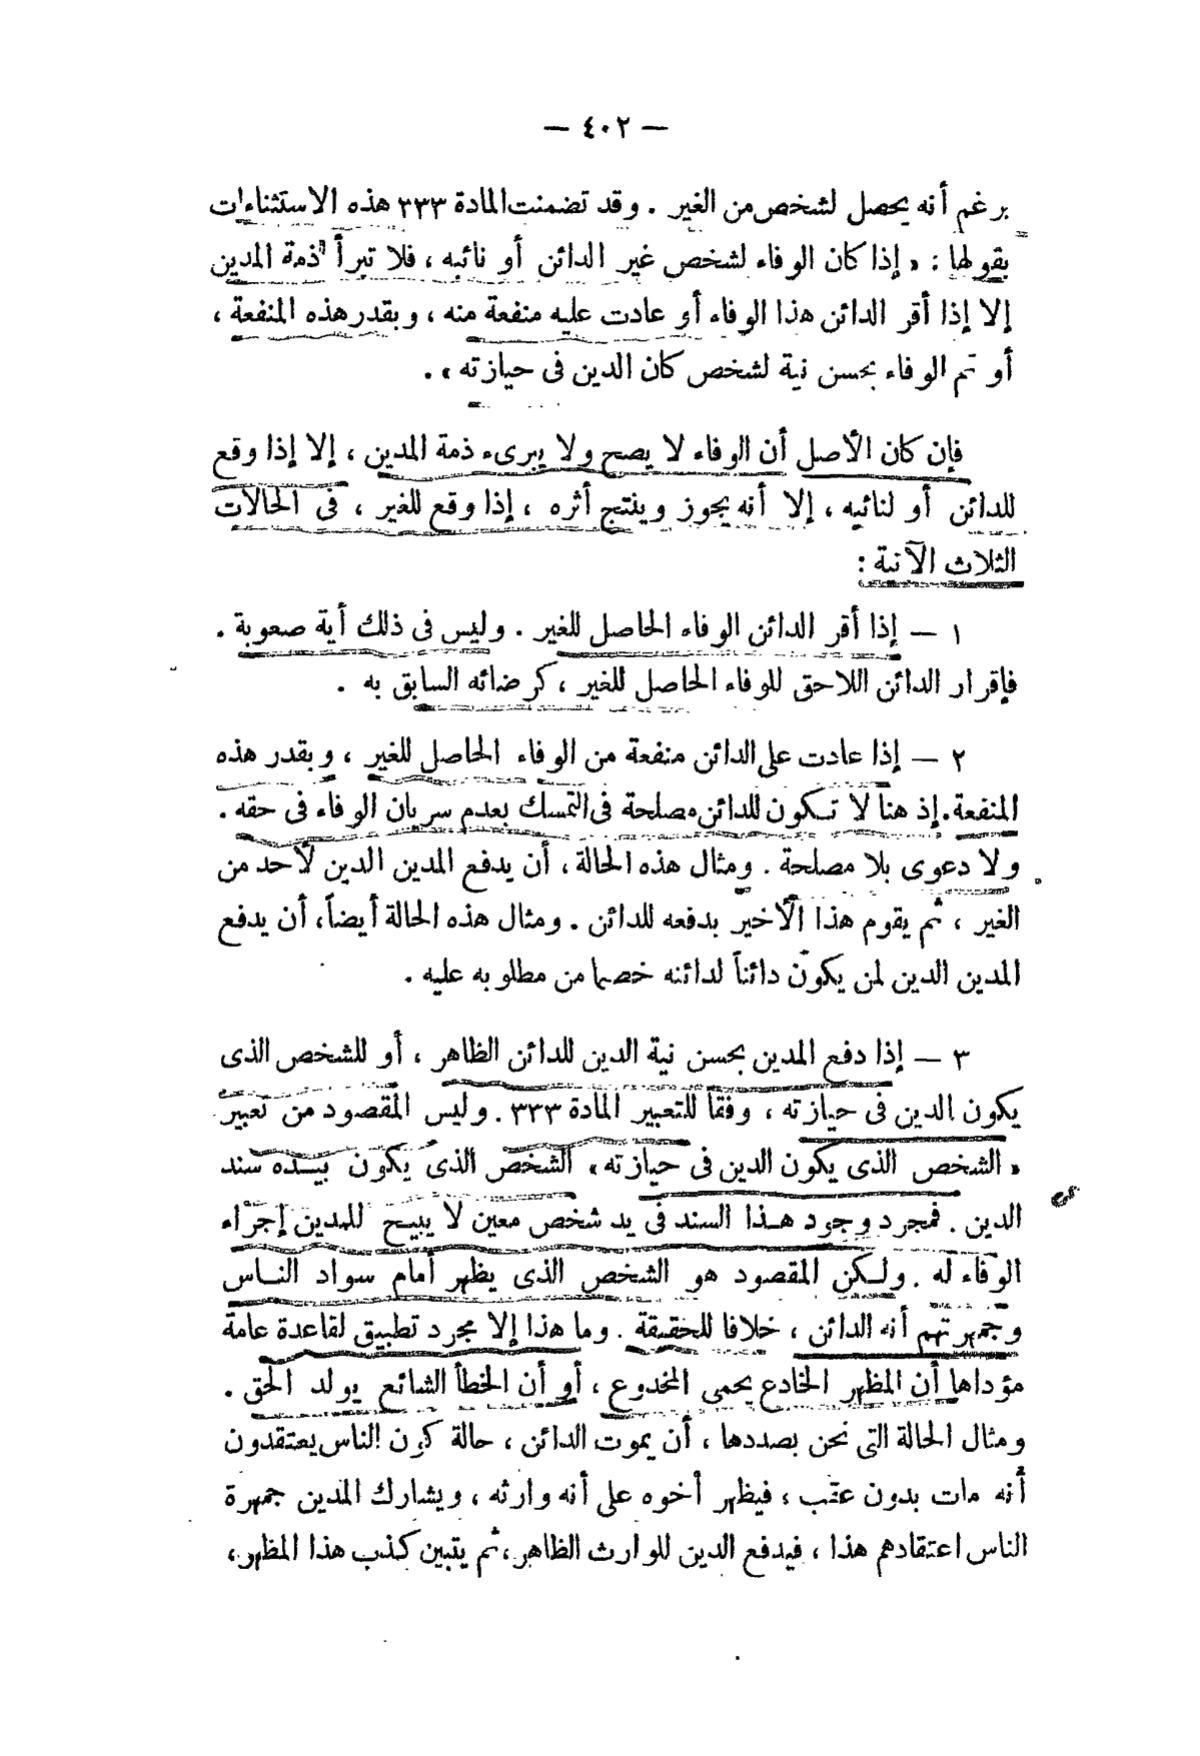 — ٤٠٢ —
برغم أنه يحصل لشخص من الغير . وقد تضمنت المادة ٣٣٣ هذه الاستثناءات
بقولها : « إذا كان الوفاء لشخص غير الدائن أو نائبه ، فلا تبرأ ذمة المدين
إلا إذا أقر الدائن هذا الوفاء أو عادت عليه منفعة منه ، وبقدر هذه المنفعة ،
أو تم الوفاء بحسن نية لشخص كان الدين فى حيازته » .
فإن كان الأصل أن الوفاء لا يصح ولا يبرىء ذمة المدين ، إلا إذا وقع
للدائن أو لنائبه ، إلا أنه يجوز وينتج أثره ، إذا وقع للغير ، فى الحالات
الثلاث الآتية :
١ — إذا أقر الدائن الوفاء الحاصل للغير . وليس فى ذلك أية صعوبة .
فإقرار الدائن اللاحق للوفاء الحاصل للغير ، كرضائه السابق به .
٢ — إذا عادت على الدائن منفعة من الوفاء الحاصل للغير ، وبقدر هذه
المنفعة . إذ هنا لا تكون للدائن مصلحة فى التمسك بعدم سريان الوفاء فى حقه .
ولا دعوى بلا مصلحة . ومثال هذه الحالة ، أن يدفع المدين الدين لأحد من
الغير ، ثم يقوم هذا الأخير بدفعه للدائن . ومثال هذه الحالة أيضاً ، أن يدفع
المدين الدين لمن يكون دائناً لدائنه خصما من مطلوبه عليه .
٣ — إذا دفع المدين بحسن نية الدين للدائن الظاهر ، أو للشخص الذى
يكون الدين فى حيازته ، وفقاً للتعبير المادة ٣٣٣ . وليس المقصود من تعبير
« الشخص الذى يكون الدين فى حيازته » الشخص الذى يكون بيده سند
الدين . فمجرد وجود هذا السند فى يد شخص معين لا يبيح للمدين إجراء
الوفاء له . ولكن المقصود هو الشخص الذى يظهر أمام سواد الناس
وجمهرتهم أنه الدائن ، خلافا للحقيقة . وما هذا إلا مجرد تطبيق لقاعدة عامة
مؤداها أن المظهر الخادع يحمى المخدوع ، أو أن الخطأ الشائع يولد الحق .
ومثال الحالة التى نحن بصددها ، أن يموت الدائن ، حالة كون الناس يعتقدون
أنه مات بدون عقب ، فيظهر أخوه على أنه وارثه ، ويشارك المدين جمهرة
الناس اعتقادهم هذا ، فيدفع الدين للوارث الظاهر ، ثم يتبين كذب هذا المظهر ،